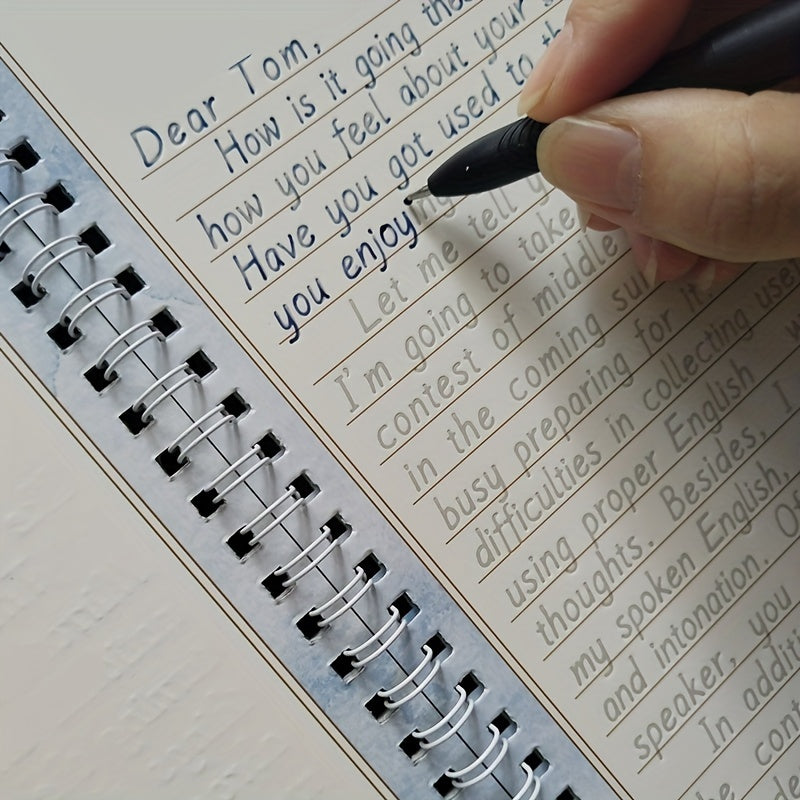 Dear Tom,
How is it going
how you feel about your
Have you got used to
you enjoy
Let me tell
I'm going to take
contest of middle
in the coming
busy preparing for it.
difficulties in collecting
using proper English
thoughts. Besides, I
my spoken English,
and intonation.
speaker, you
In